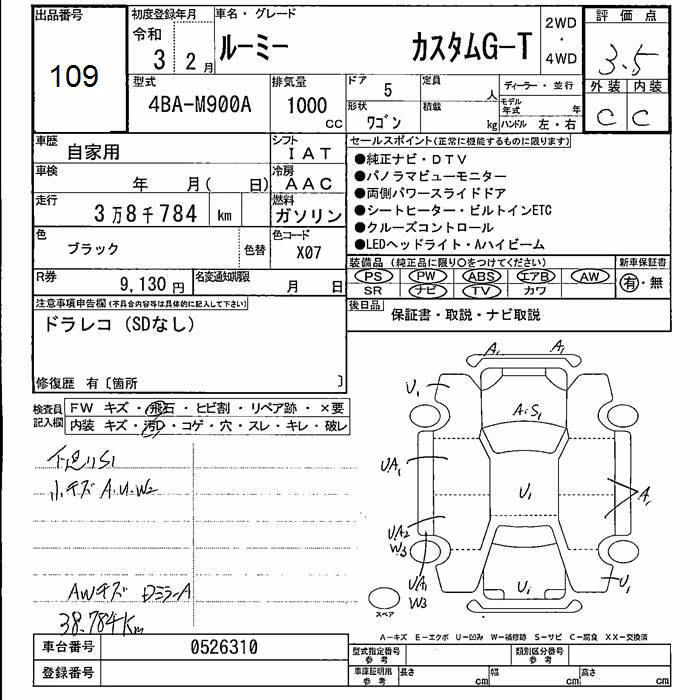 出品番号
109
初度登録年月
令和
3 2月
車名・グレード
ルーミー カスタムG-T
2WD
・
4WD
評価点
3.5
外装 内装
C C
型式
4BA-M900A
排気量
1000
CC
ドア
5
定員
人
形状
ワゴン
積載
kg
ディーラー・並行
モデル年式 年
ハンドル 左・右
車歴
自家用
シフト
IAT
車検
年 月( 日)
冷房
AAC
走行
3万8千784 km
燃料
ガソリン
色
ブラック
色替
色コード
X07
R券
9,130円
名変通知期限
月 日
セールスポイント(正常に機能するものに限ります)
●純正ナビ・DTV
●パノラマビューモニター
●両側パワースライドドア
●シートヒーター・ビルトインETC
●クルーズコントロール
●LEDヘッドライト・Aハイビーム
装備品(純正品に限り○をつけてください)
PS PW ABS エアB AW
SR ナビ TV カワ
新車保証書
有・無
後日品
保証書・取説・ナビ取説
注意事項申告欄(不具合内容等は具体的に記入して下さい)
ドラレコ(SDなし)
修復歴 有〔箇所 〕
検査員
記入欄
FW キズ・飛石・ヒビ割・リペア跡・×要
内装 キズ・汚レ・コゲ・穴・スレ・キレ・破レ
下廻りS1
小キズA.U.W2
AWキズ DミラーA
38.784km
A1 A1
U1
A1S1
UA1
U1
A1
UA2
W3
UA1
W3
U1
U1
スペア
A-キズ E-エクボ U-凹み W-補修跡 S-サビ C-腐食 XX-交換済
車台番号
0526310
登録番号
型式指定番号
参考
類別区分番号
参考
車庫証明用
参考
長さ cm
幅 cm
高さ cm